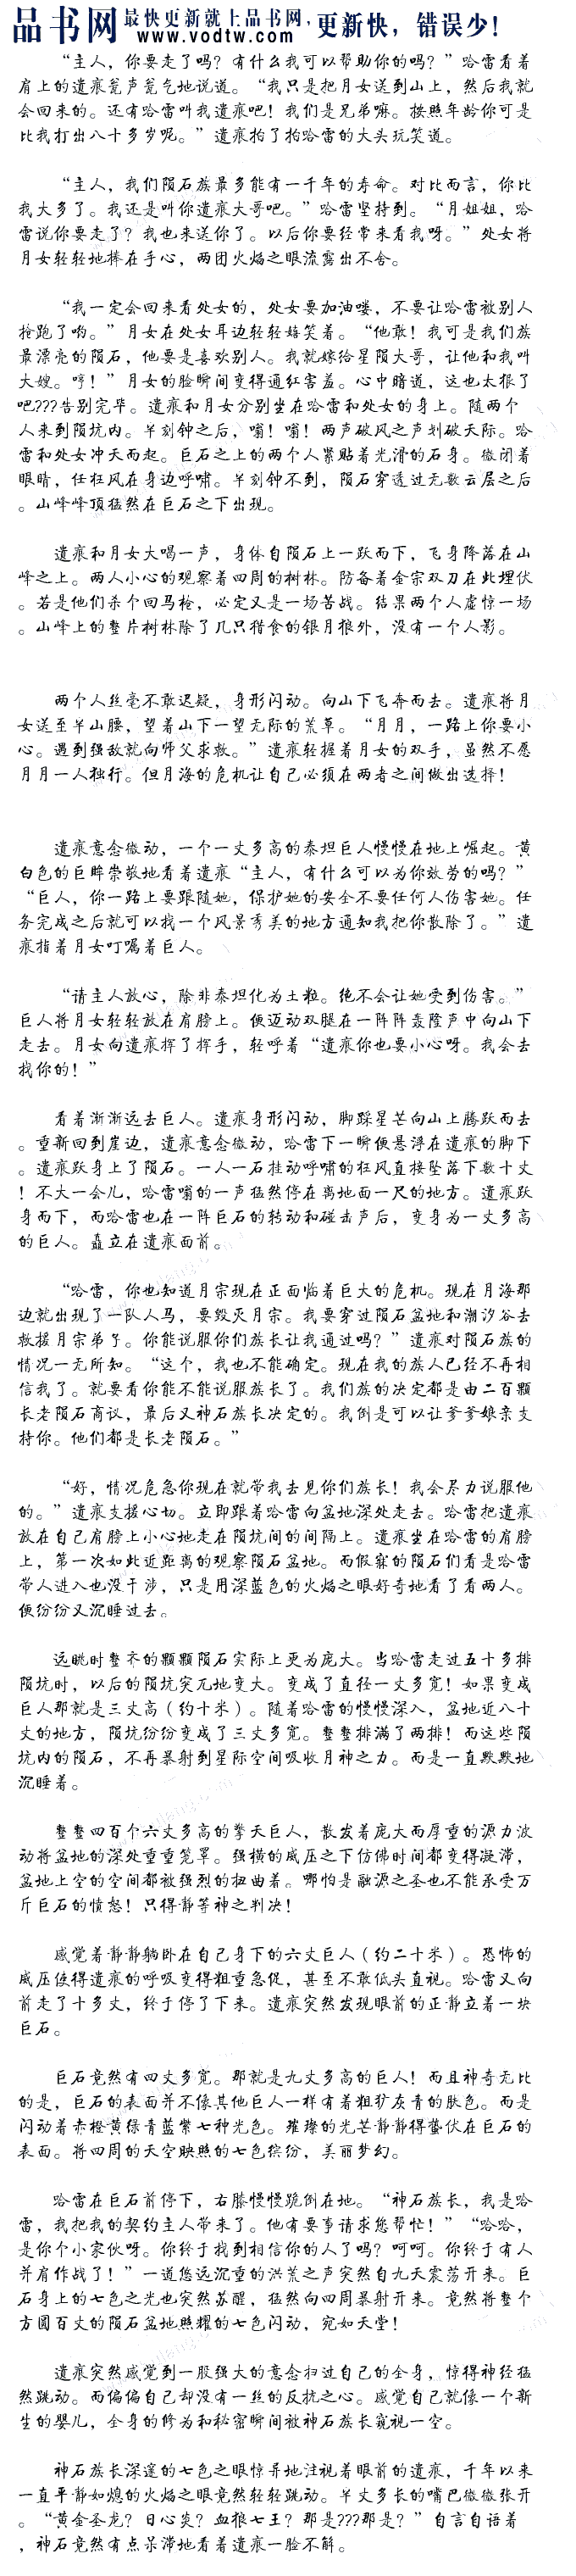 品书网 最快更新就上品书网,更新快,错误少!
www.vodtw.com
“主人，你要走了吗？有什么我可以帮助你的吗？”哈雷看着
肩上的遗痕瓮声瓮气地说道。“我只是把月女送到山上，然后我就
会回来的。还有哈雷叫我遗痕吧！我们是兄弟嘛。按照年龄你可是
比我打出八十多岁呢。”遗痕拍了拍哈雷的大头玩笑道。
“主人，我们陨石族最多能有一千年的寿命。对比而言，你比
我大多了。我还是叫你遗痕大哥吧。”哈雷坚持到。“月姐姐，哈
雷说你要走了？我也来送你了。以后你要经常来看我呀。”处女将
月女轻轻地捧在手心，两团火焰之眼流露出不舍。
“我一定会回来看处女的，处女要加油喽，不要让哈雷被别人
抢跑了哟。”月女在处女耳边轻轻嬉笑着。“他敢！我可是我们族
最漂亮的陨石，他要是喜欢别人。我就嫁给星陨大哥，让他和我叫
大嫂。哼！”月女的脸瞬间变得通红害羞。心中暗道，这也太狠了
吧???告别完毕。遗痕和月女分别坐在哈雷和处女的身上。随两个
人来到陨坑内。半刻钟之后，嗡！嗡！两声破风之声划破天际。哈
雷和处女冲天而起。巨石之上的两个人紧贴着光滑的石身。微闭着
眼睛，任狂风在身边呼啸。半刻钟不到，陨石穿透过无数云层之后
。山峰峰顶猛然在巨石之下出现。
遗痕和月女大喝一声，身体自陨石上一跃而下，飞身降落在山
峰之上。两人小心的观察着四周的树林。防备着金宗双刀在此埋伏
。若是他们杀个回马枪，必定又是一场苦战。结果两个人虚惊一场
。山峰上的整片树林除了几只猎食的银月狼外，没有一个人影。
两个人丝毫不敢迟疑，身形闪动。向山下飞奔而去。遗痕将月
女送至半山腰，望着山下一望无际的荒草。“月月，一路上你要小
心。遇到强敌就向师父求救。”遗痕轻握着月女的双手，虽然不愿
月月一人独行。但月海的危机让自己必须在两者之间做出选择！
遗痕意念微动，一个一丈多高的泰坦巨人慢慢在地上崛起。黄
白色的巨眸崇敬地看着遗痕“主人，有什么可以为你效劳的吗？”
“巨人，你一路上要跟随她，保护她的安全不要任何人伤害她。任
务完成之后就可以找一个风景秀美的地方通知我把你散除了。”遗
痕指着月女叮嘱着巨人。
“请主人放心，除非泰坦化为土粒。绝不会让她受到伤害。”
巨人将月女轻轻放在肩膀上。便迈动双腿在一阵阵轰隆声中向山下
走去。月女向遗痕挥了挥手，轻呼着“遗痕你也要小心呀。我会去
找你的！”
看着渐渐远去巨人。遗痕身形闪动，脚踩星芒向山上腾跃而去
。重新回到崖边，遗痕意念微动，哈雷下一瞬便悬浮在遗痕的脚下
。遗痕跃身上了陨石。一人一石挂动呼啸的狂风直接坠落下数十丈
！不大一会儿，哈雷嗡的一声猛然停在离地面一尺的地方。遗痕跃
身而下，而哈雷也在一阵巨石的转动和碰击声后，变身为一丈多高
的巨人。矗立在遗痕面前。
“哈雷，你也知道月宗现在正面临着巨大的危机。现在月海那
边就出现了一队人马，要毁灭月宗。我要穿过陨石盆地和潮汐谷去
救援月宗弟子。你能说服你们族长让我通过吗？”遗痕对陨石族的
情况一无所知。“这个，我也不能确定。现在我的族人已经不再相
信我了。就要看你能不能说服族长了。我们族的决定都是由二百颗
长老陨石商议，最后又神石族长决定的。我倒是可以让爹爹娘亲支
持你。他们都是长老陨石。”
“好，情况危急你现在就带我去见你们族长！我会尽力说服他
的。”遗痕支援心切。立即跟着哈雷向盆地深处走去。哈雷把遗痕
放在自己肩膀上小心地走在陨坑间的间隔上。遗痕坐在哈雷的肩膀
上，第一次如此近距离的观察陨石盆地。而假寐的陨石们看是哈雷
带人进入也没干涉，只是用深蓝色的火焰之眼好奇地看了看两人。
便纷纷又沉睡过去。
远眺时整齐的颗颗陨石实际上更为庞大。当哈雷走过五十多排
陨坑时，以后的陨坑突兀地变大。变成了直径一丈多宽！如果变成
巨人那就是三丈高（约十米）。随着哈雷的慢慢深入，盆地近八十
丈的地方，陨坑纷纷变成了三丈多宽。整整排满了两排！而这些陨
坑内的陨石，不再暴射到星际空间吸收月神之力。而是一直默默地
沉睡着。
整整四百个六丈多高的擎天巨人，散发着庞大而厚重的源力波
动将盆地的深处重重笼罩。强横的威压之下仿佛时间都变得凝滞，
盆地上空的空间都被强烈的扭曲着。哪怕是融源之圣也不能承受万
斤巨石的愤怒！只得静等神之判决！
感觉着静静躺卧在自己身下的六丈巨人（约二十米）。恐怖的
威压使得遗痕的呼吸变得粗重急促，甚至不敢低头直视。哈雷又向
前走了十多丈，终于停了下来。遗痕突然发现眼前的正静立着一块
巨石。
巨石竟然有四丈多宽。那就是九丈多高的巨人！而且神奇无比
的是，巨石的表面并不像其他巨人一样有着粗犷灰青的肤色。而是
闪动着赤橙黄绿青蓝紫七种光色。璀璨的光芒静静得蛰伏在巨石的
表面。将四周的天空映照的七色缤纷，美丽梦幻。
哈雷在巨石前停下，右膝慢慢跪倒在地。“神石族长，我是哈
雷，我把我的契约主人带来了。他有要事请求您帮忙！”“哈哈，
是你个小家伙呀。你终于找到相信你的人了吗？呵呵。你终于有人
并肩作战了！”一道悠远沉重的洪荒之声突然自九天震荡开来。巨
石身上的七色之光也突然苏醒，猛然向四周暴射开来。竟然将整个
方圆百丈的陨石盆地照耀的七色闪动，宛如天堂！
遗痕突然感觉到一股强大的意念扫过自己的全身，惊得神经猛
然跳动。而偏偏自己却没有一丝的反抗之心。感觉自己就像一个新
生的婴儿，全身的修为和秘密瞬间被神石族长窥视一空。
神石族长深邃的七色之眼惊异地注视着眼前的遗痕，千年以来
一直平静如熄的火焰之眼竟然轻轻跳动。半丈多长的嘴巴微微张开
。“黄金圣龙？日心炎？血狼七王？那是???那是？”自言自语着
，神石竟然有点呆滞地看着遗痕一脸不解。